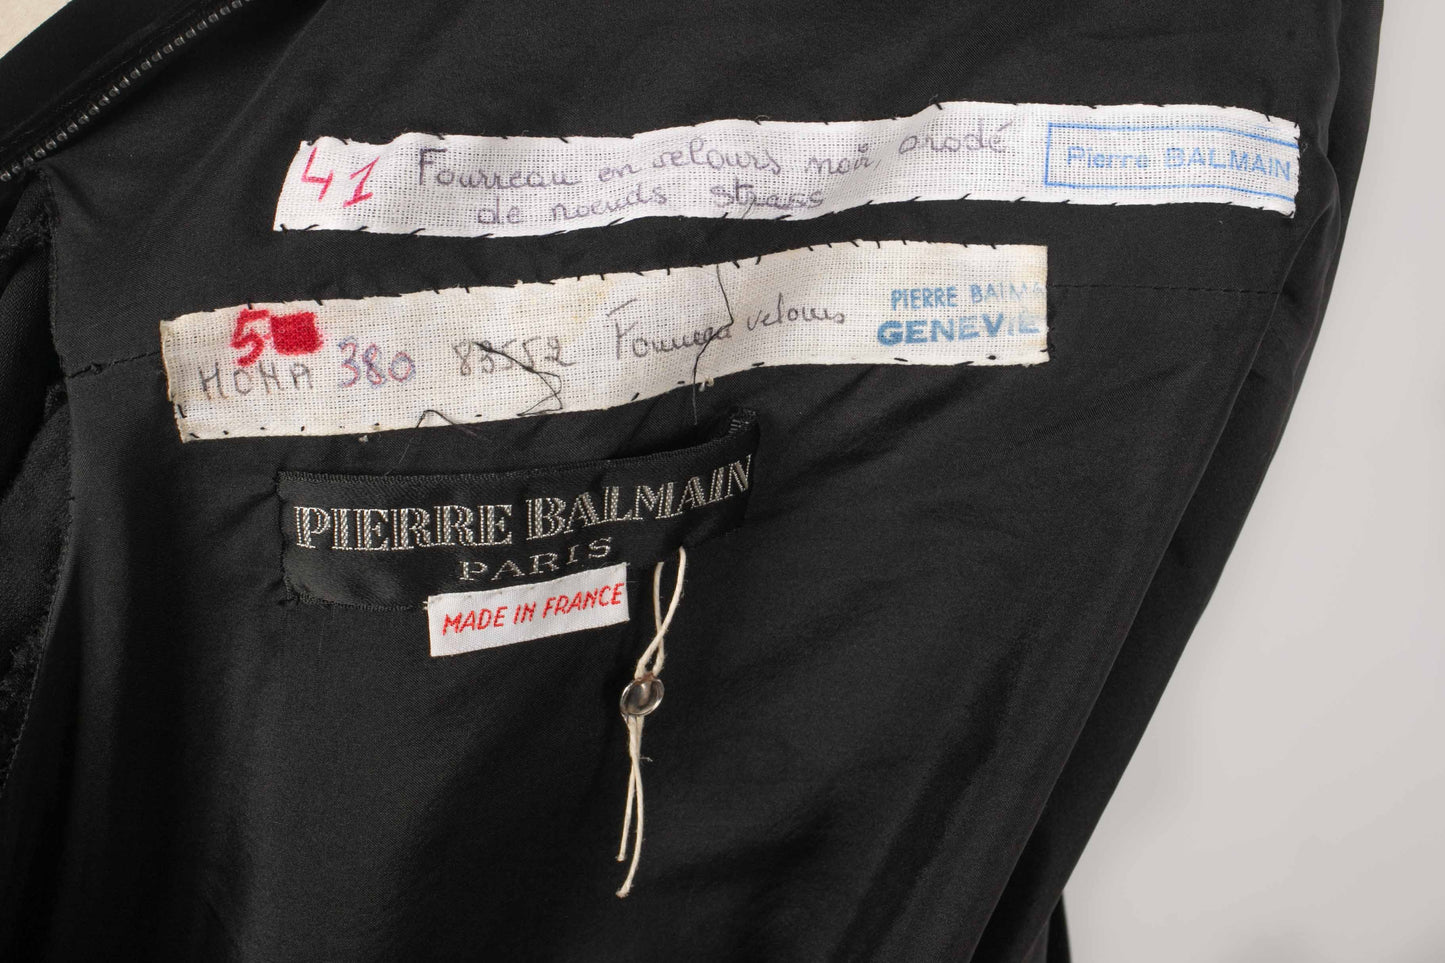 41 Fourreau en velours noir, brodé
Pierre BALMAIN
de noeuds strass
5
MOHA 380 83552 Fourreau velours
PIERRE BALMA
GENEVIE
PIERRE BALMAIN
PARIS
MADE IN FRANCE